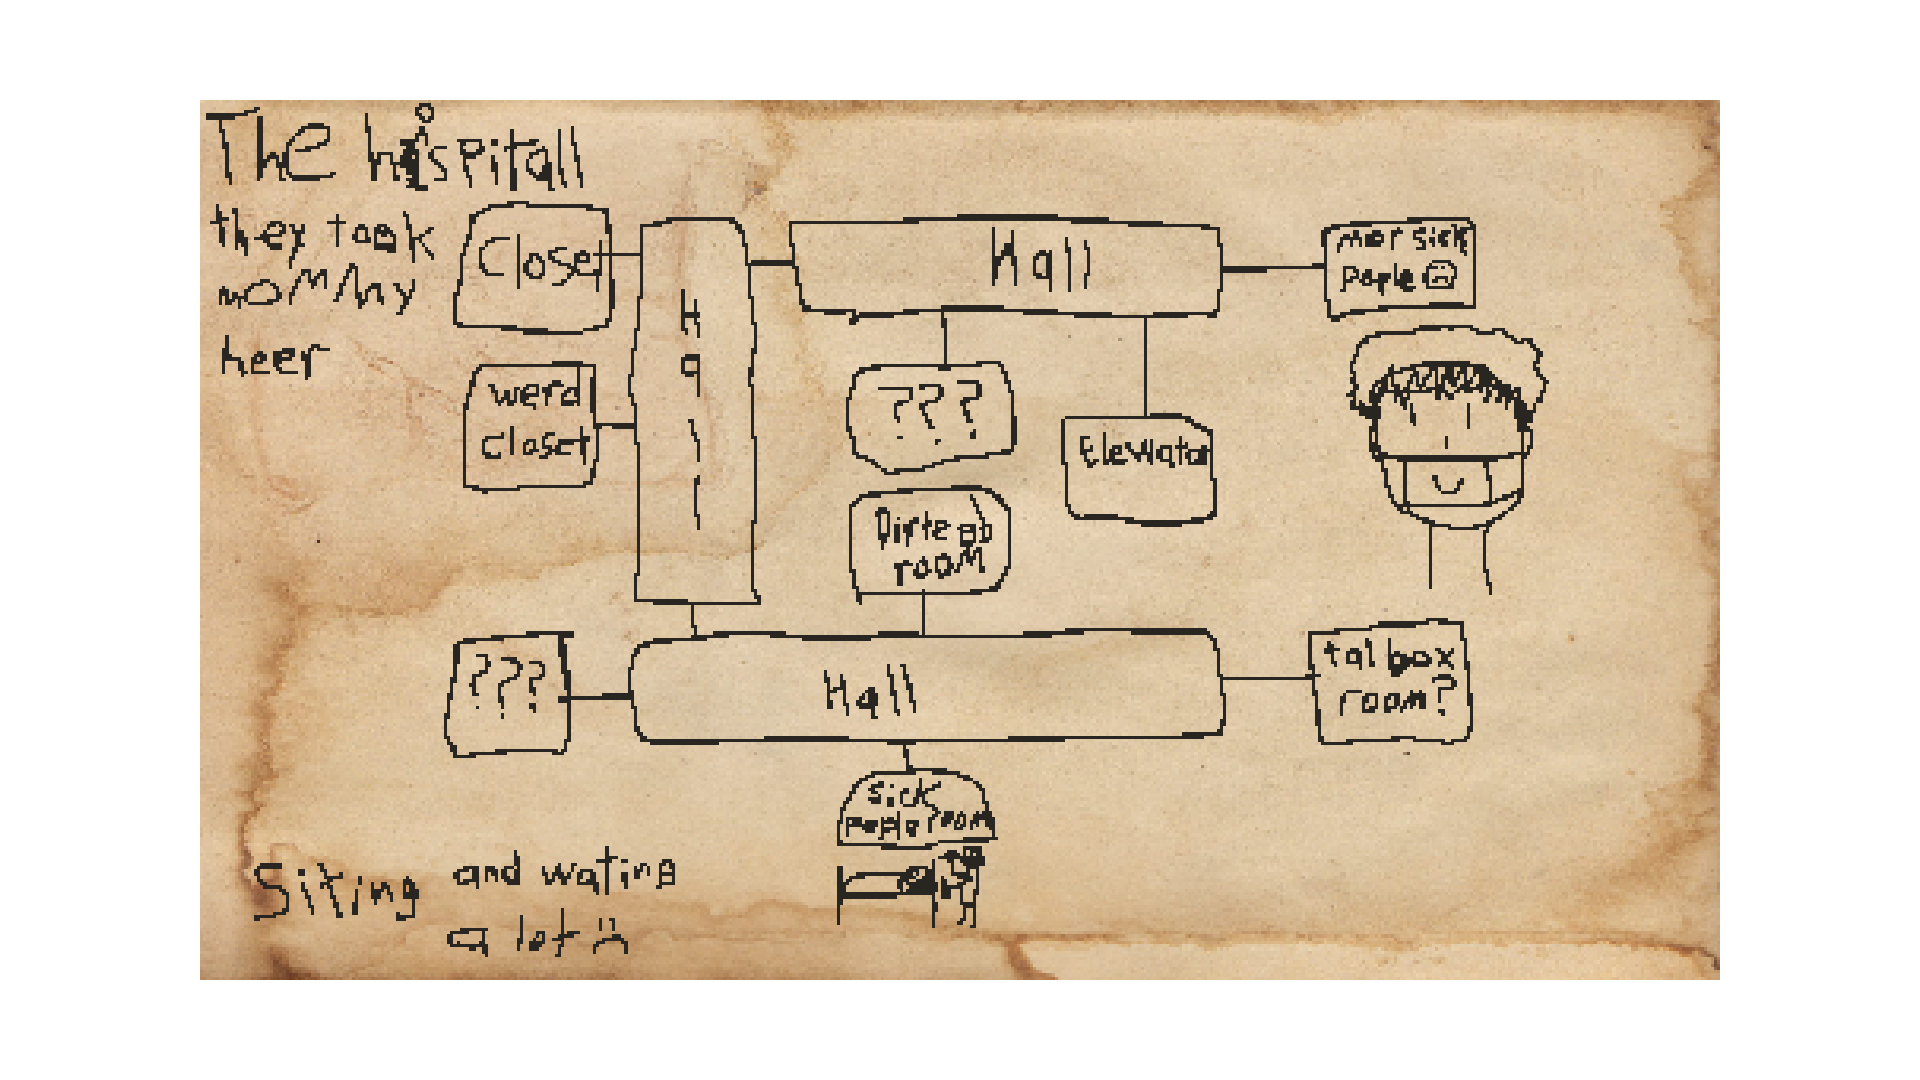 The hospitall
they took
mommy
heer
Closed
werd
closet
H
a
l
l
Hall
mor sick
pople
???
Elevator
Dirte
room
???
Hall
tal box
room?
sick
pople room
Siting and wating
a lot